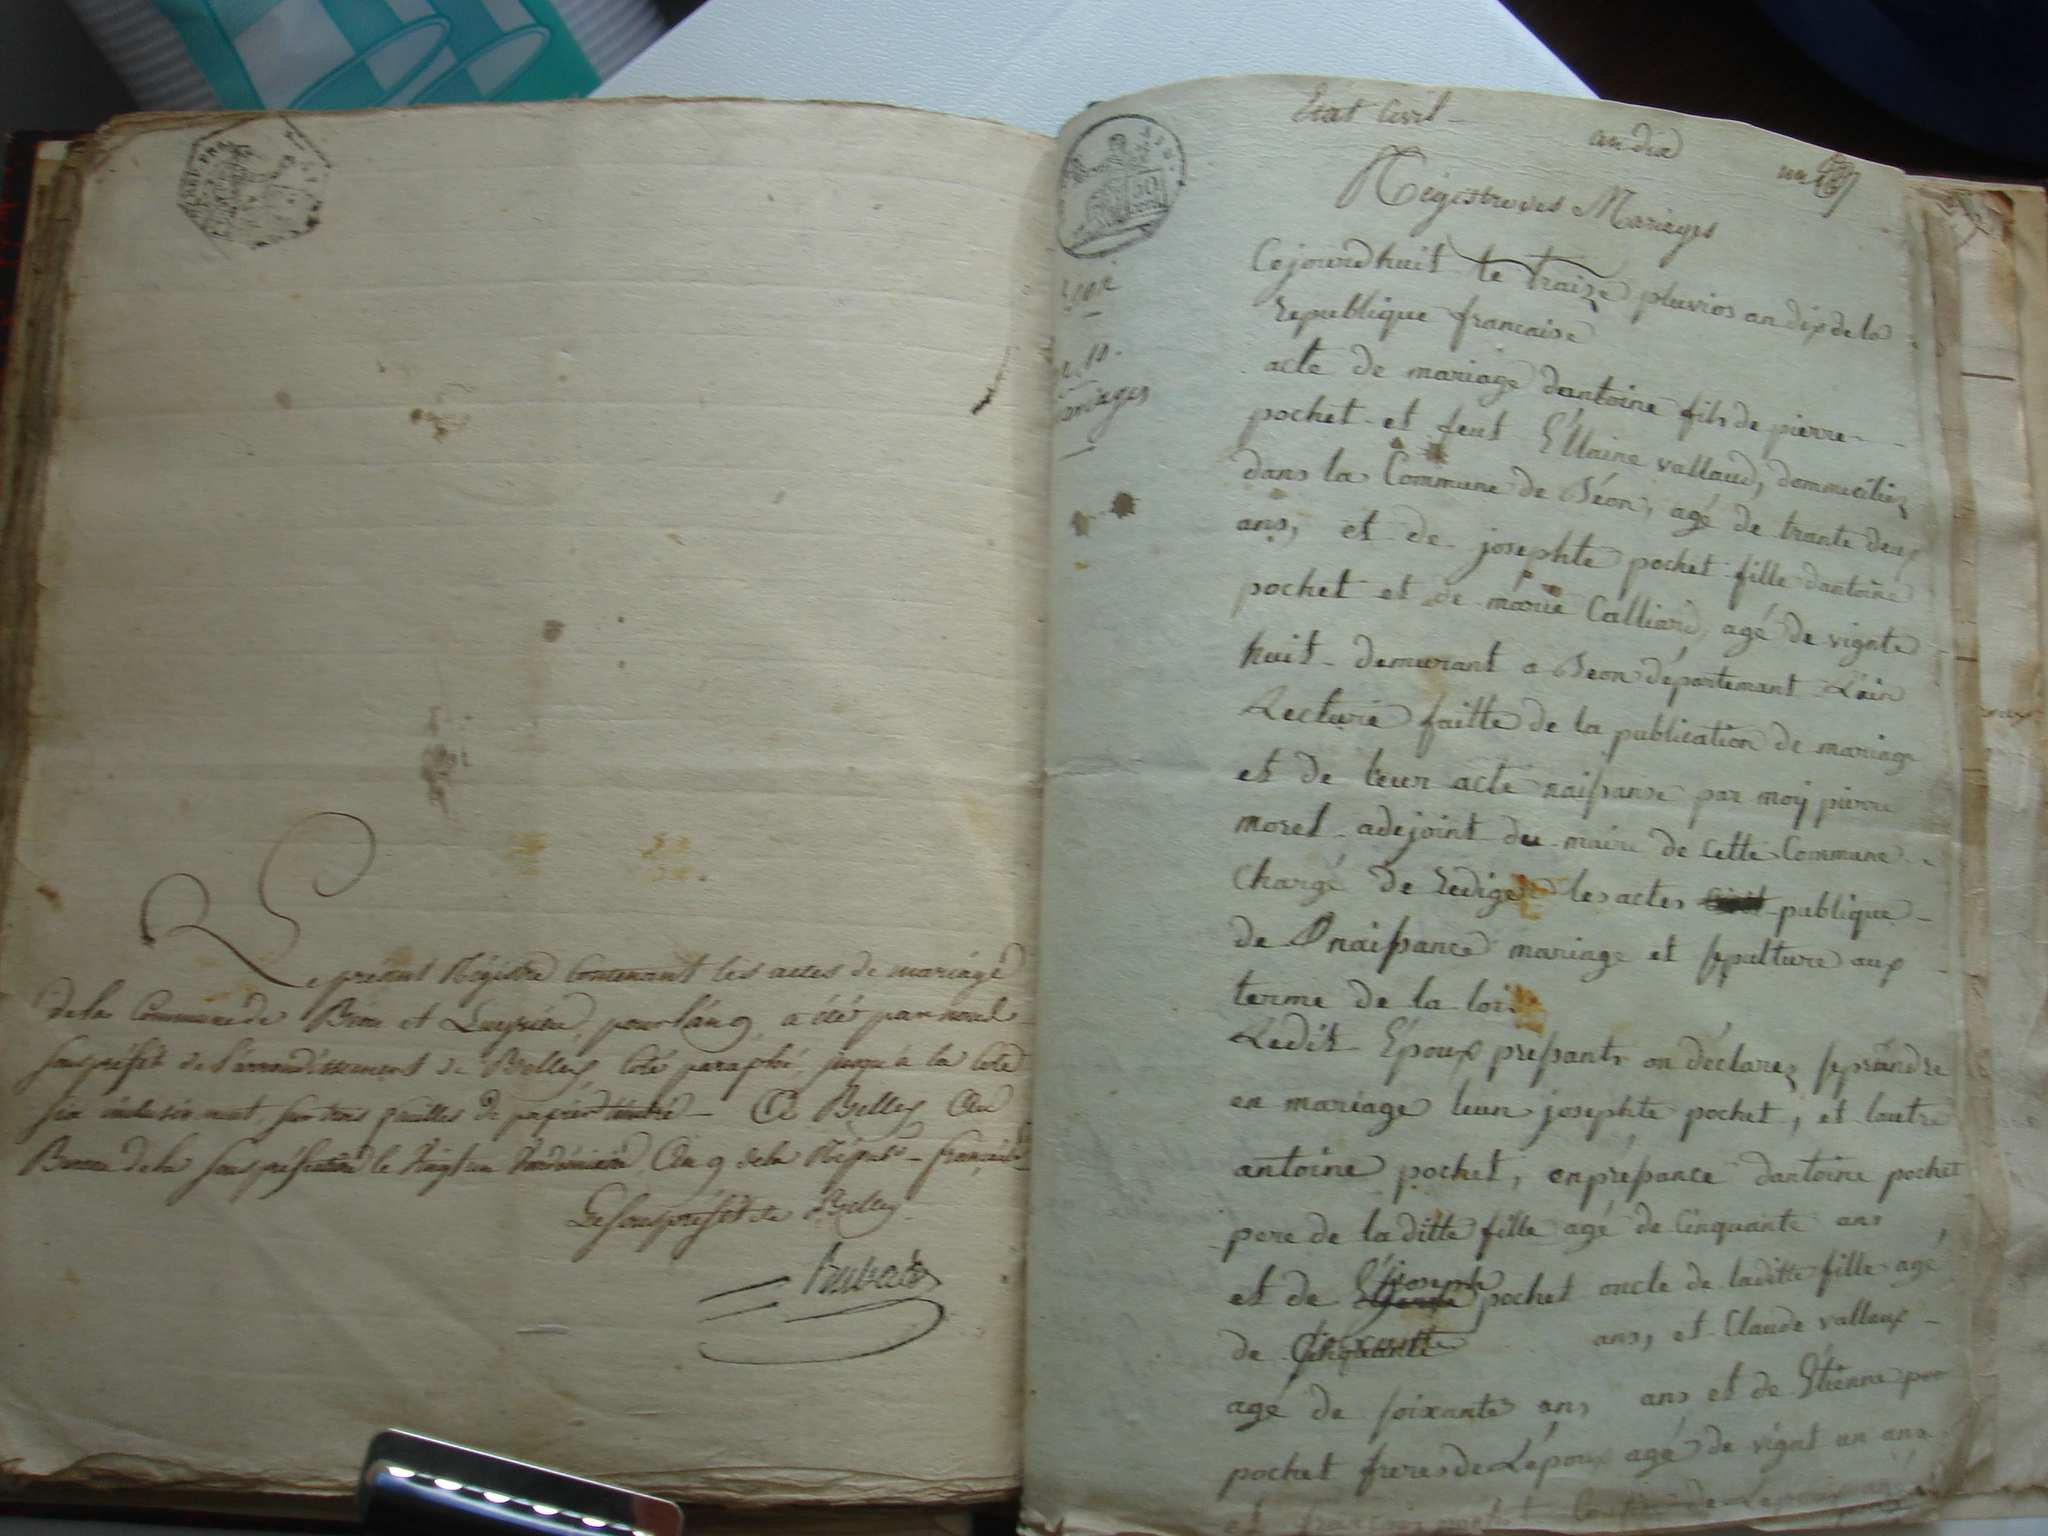 Le présent Régistre Contenant les actes de mariage
de la Commune de Béon et Luyrieu, pour l'an 9, a été par nous
sous préfet de l'arrondissement de Belley, coté paraphé, jusqu'à la cote
six inclusivement, sur trois feuilles de papier timbré - A Belley Au
Bureau de la sous préfecture le vingt un Vendémiaire An 9 de la Répub. française
Le sous préfet de Belley
Etat Civil -
an dix
Régistre des Mariages
Béon
an 10.
mariages
Cejourdhuit le traize pluvios an dix de la
republique francaise
acte de mariage dantoine fils de pierre
pochet et feut Ellaine vallaud, dommeciliez
dans la Commune de Béon, agé de trante deux
ans, et de josephte pochet fille dantoine
pochet et de marie Calliard, agé de vignte
huit - demurant a Beon départemant L'ain
Lecture faitte de la publication de mariage
et de leur acte naissanse par moy pierre
morel adejoint du maire de cette Commune
Chargé de redigé les actes civil publique
de naissance mariage et sepulture aux
terme de la loi
Ledit Epoux pressants on déclarez se prandre
en mariage leun josephte pochet, et lautre
antoine pochet, en pressance dantoine pochet
pere de laditte fille agé de Cinquante ans
et de joseph pochet oncle de laditte fille agé
de Cinquante ans, et Claude vallaux
agé de soixante ans ans et de Etienne po
pochet freres de Lépoux agé de vignt un ans